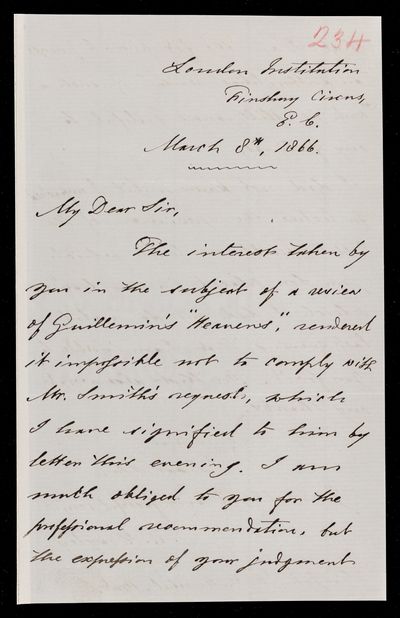 234
London Institution
Finsbury Circus,
E. C.
March 8th, 1866.
My Dear Sir,
The interest taken by
you in the subject of a review
of Guillemin's "Heavens", rendered
it impossible not to comply with
Mr. Smith's request, which
I have signified to him by
letter this evening. I am
much obliged to you for the
professional recommendation, but
the expression of your judgment